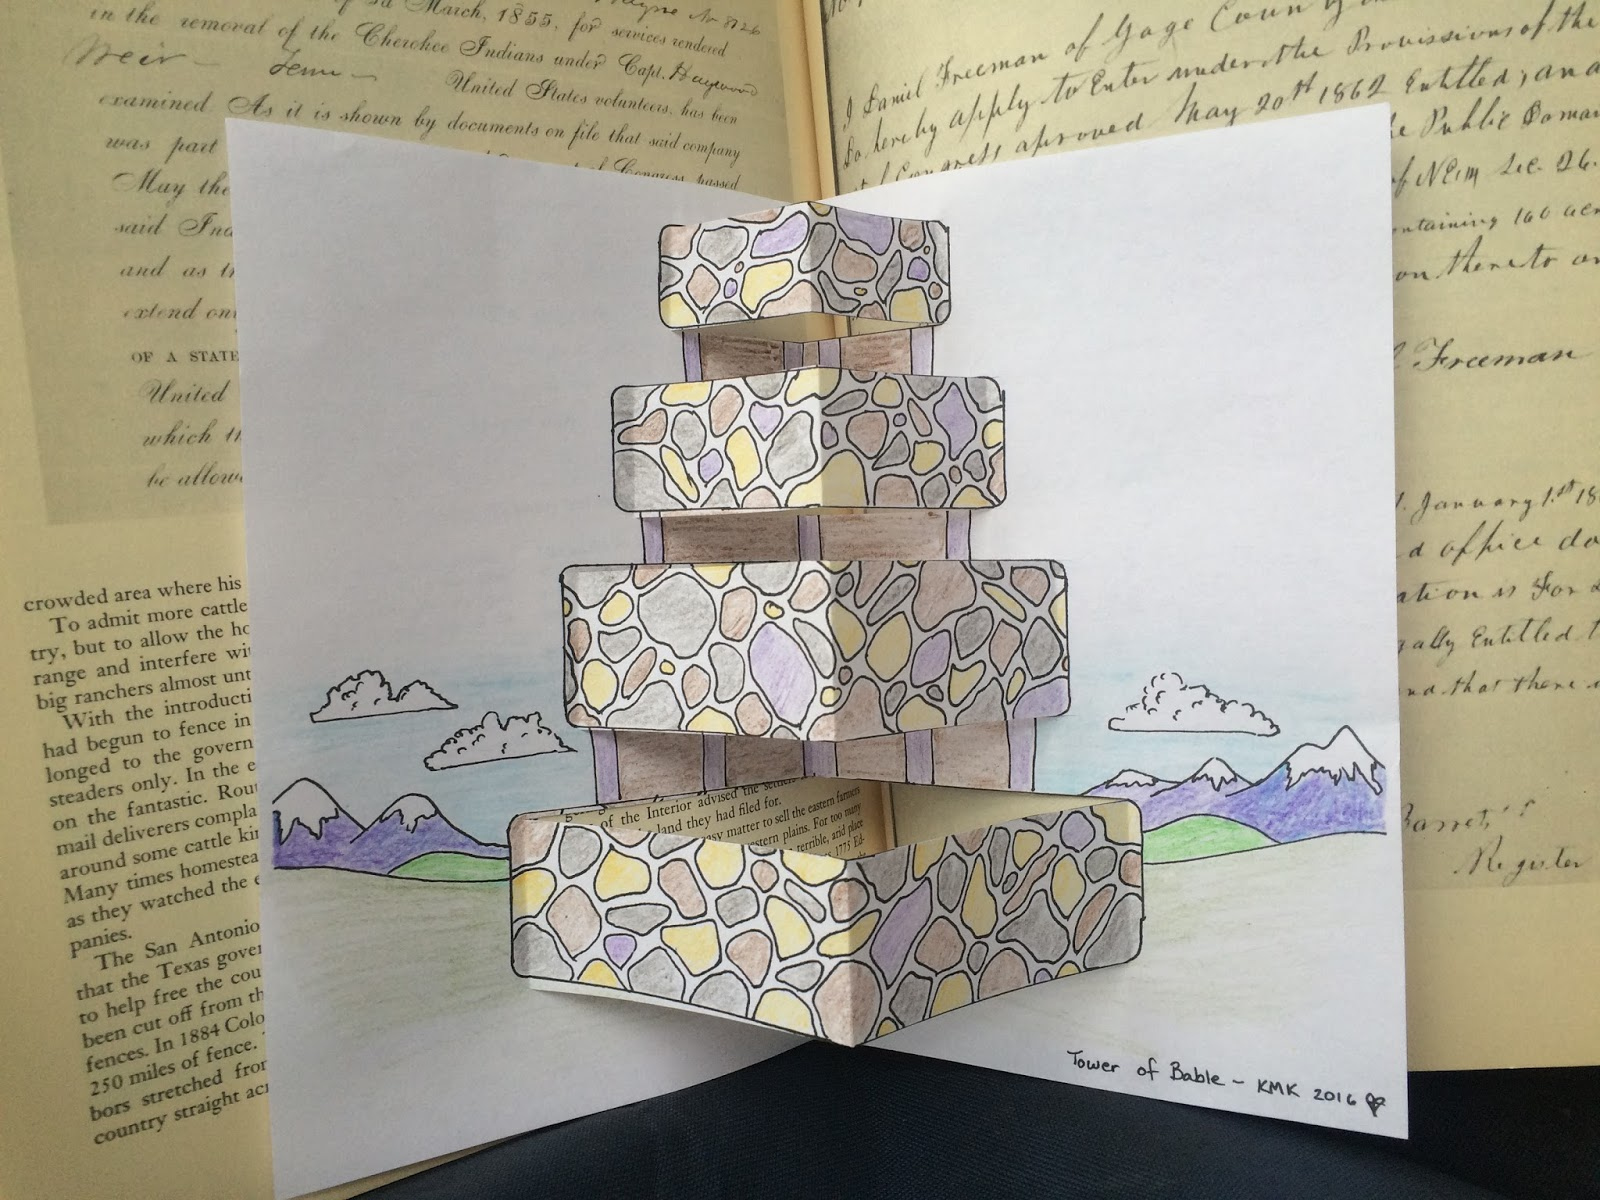 of 3d March, 1855, for services rendered
in the removal of the Cherokee Indians under Capt. Haywood
Weir — Tenn —
United States volunteers, has been
examined. As it is shown by documents on file that said company
was part
of Congress, passed
May the
said Ind
and as th
extend on
OF A STATE
United
which th
be allow
crowded area where his
To admit more cattle
try, but to allow the ho
range and interfere wi
big ranchers almost unt
With the introducti
had begun to fence in
longed to the govern
steaders only. In the e
on the fantastic. Rou
mail deliverers compla
around some cattle kin
Many times homestea
as they watched the e
panies.
The San Antonio
that the Texas gover
to help free the cou
been cut off from th
fences. In 1884 Colo
250 miles of fence.
bors stretched fror
country straight acr
of the Interior advised the settlers
land they had filed for.
easy matter to sell the eastern farmers
western plains. For too many
terrible, and place
1775 Ed-
I Daniel Freeman of Gage County
Do hereby apply to Enter under the Provisions of the
of Congress aproved May 20th 1862 Entitled, an a
the Public Domai
of NE¼ Sec. 26.
ontaining 160 acr
on thereto an
Freeman
January 1st 18
d office
ation is For
gally Entitled t
nd that there i
Barrett
Register
Tower of Bable - KMK 2016